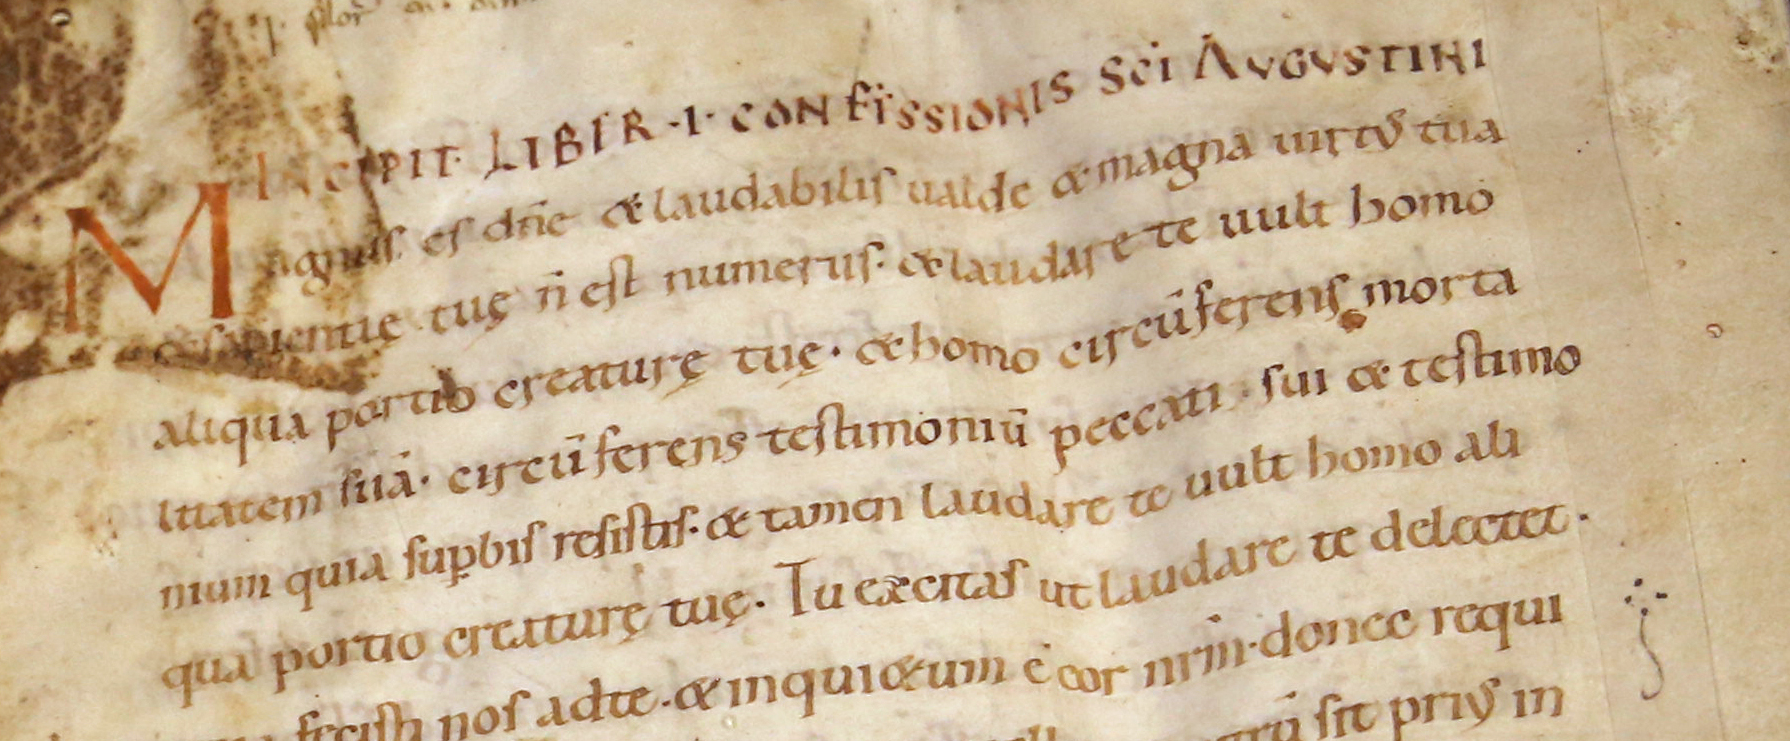 INCIPIT LIBER ·I· CONFESSIONIS SCI AVGVSTINI
Magnus es dñe & laudabilis ualde & magna uirtꝰ tua
& sapientie tuę ñ est numerus· & laudare te uult homo
aliqua portio creaturę tuę· & homo circũferens morta
litatem suã· circũferens testimoniũ peccati· sui & testimo
nium quia suꝑbis resistis· & tamen laudare te uult homo ali
qua portio creaturę tuę· Tu excitas ut laudare te delectet·
fecisti nos adte· & inqui&um ē cor nrm̄· donec requi
sit priꝰ in